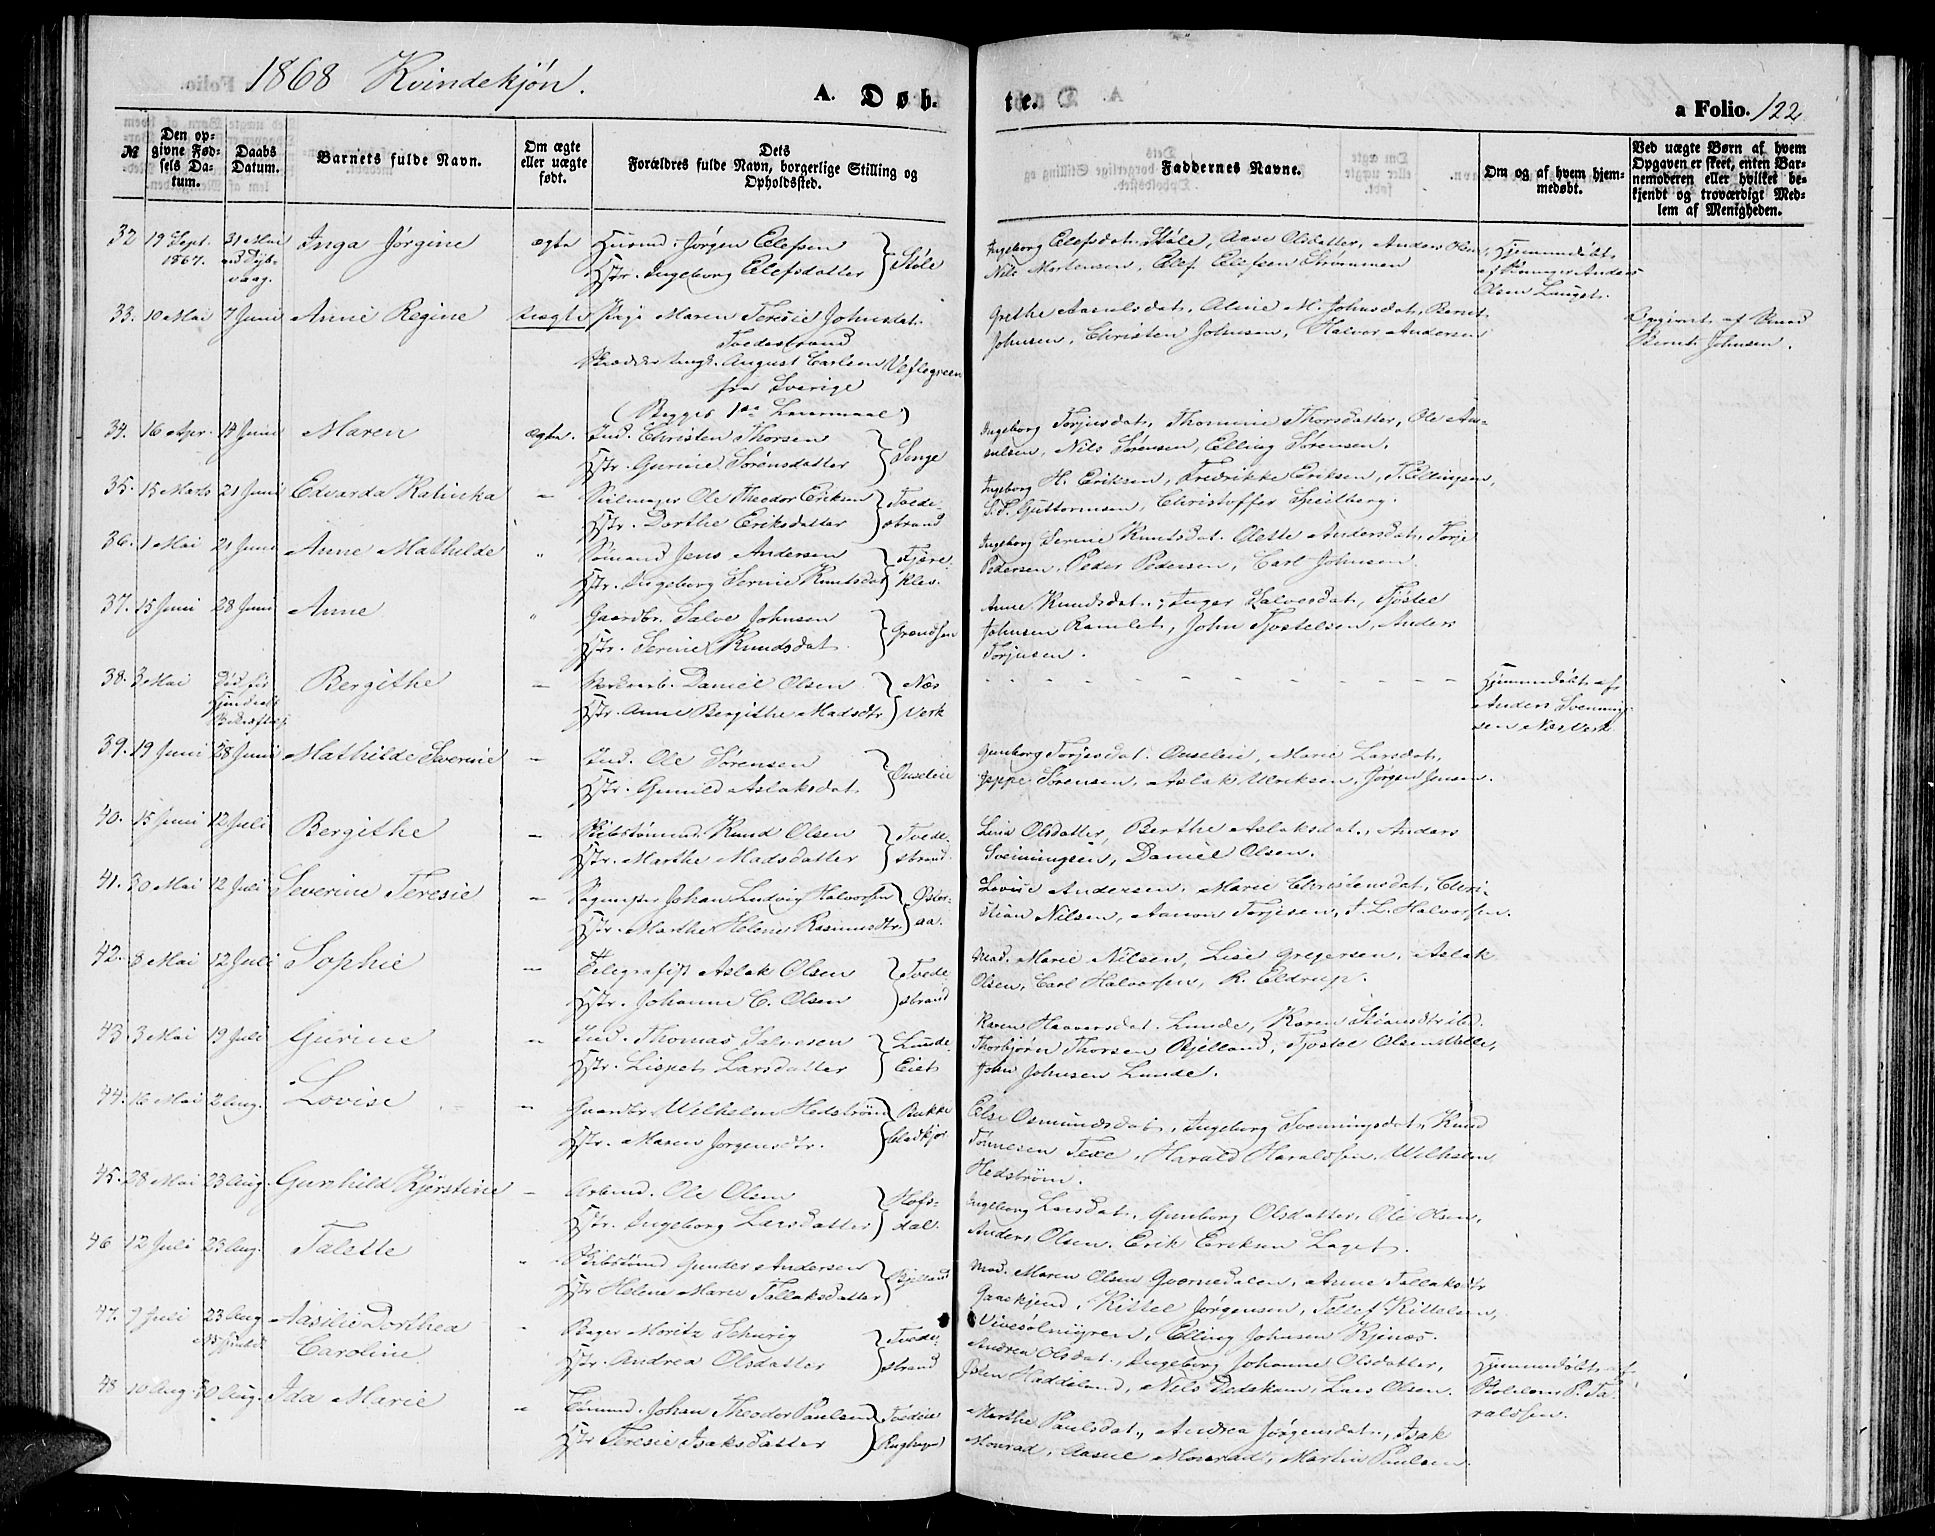 1868 Kvindekjøn.
A. Døb-
te.
a Folio. 122
№
Den op-
givne Fød-
sels Da-
tum.
Daabs
Datum.
Barnets fulde Navn.
Om ægte
eller uægte
født.
Dets
Forældres fulde Navn, borgerlige Stilling og
Opholdssted.
Faddernes Navne.
Om og af hvem hjem-
medøbt.
Ved uægte Børn af hvem
Opgaven er skeet, enten Bar-
nemoderen eller hvilket be-
kjendt og troværdigt Med-
lem af Menigheden.
32 19 Sept. 31 Mai Inga Jørgine ægte Husmd. Jørgen Elefsen
1867. ved Dyb-
vaag. Hstr. Ingeborg Elefsdatter Støle
Ingeborg Elefsdat. Støle, Aase Olsdatter, Anders Olsen,
Nils Mortensen, Elef Elefsen Strømmen
Hjemmedøbt
af Anders
Olsen Lauget.
33. 10 Mai 7 Juni Anne Regine uægte Pige Maren Teresie Johnsdat.
Tvedestrand
August Carlsen
fra Sverige
(Begges 1ste Leiermaal)
Grethe Aanulsdat, Oline M. Johnsdat, Bernt
Johnsen, Christen Johnsen, Halvor Andersen
Opgivet af
Bernt Johnsen.
34. 16 Apr. 14 Juni Maren ægte. Ind. Christen Thorsen
Hstr. Gurine Sørensdatter Songe
Ingeborg Torjusdat, Thomine Thorsdatter, Ole An-
Nils Sørensen, Elling Sørensen.
35. 15 Marts 21 Juni Edvarda Katinka - Seilmager Ole Theodor Eriksen
Hstr. Dorthe Eriksdatter Tvede-
strand
Ingeborg H. Eriksen, Fredrikke Eriksen, T. Ellingsen,
S. T. Guttormsen, Christoffer Heilberg.
36. 1 Mai 21 Juni Anne Mathilde " Sømand Jens Andersen
Hstr. Ingeborg Serine Knutsdat Fjære-
klev
Ingeborg Serine Knutsdat. Olette Andersdat, Torje
Pedersen, Peder Pedersen, Carl Johnsen.
37. 15 Juni 28 Juni Anne " Gaardbr. Salve Johnsen
Hstr. Serine Knudsdat.
Anne Knudsdat., Inger Salvesdat, Tjøstel
Johnsen Ramlet, John Tjostelsen, Anders
Torjusen.
38. 3 Mai Død før Bergithe - Værksarb. Daniel Olsen
Hstr. Anne Bergithe Madsdtr Næs
Værk
Hjemmedøbt af
Anders Svenning-
sen Næs Værk
39. 19 Juni 28 Juni Mathilde Severine - Ind. Ole Sørensen
Hstr. Gunild Aslaksdat. Ouseleie
Gunborg Torjesdat. Ouseleie, Marie Larsdat,
Jeppe Sørensen, Aslak Ulriksen, Jørgen Jensen.
40. 15 Juni 12 Juli Bergithe - Skibstømmd. Knud Olsen
Hstr. Marthe Madsdatter Tvede-
strand.
Lina Olsdatter, Berthe Aslaksdat, Anders
Svenningsen, Daniel Olsen.
41. 30 Mai 12 Juli Severine Teresie - Sagmester Johan Ludvig Halvorsen
Hstr. Marthe Helene Rasmusdtr. Øster-
aa.
Lovise Andersen, Marie Christensdat, Chri-
stian Nilsen, Aanon Torjesen, J. L. Halvorsen.
42. 8 Mai 12 Juli Sophie - Telegrafist Aslak Olsen
Hstr. Johanne C. Olsen Tvede
strand
Mad. Marie Nilsen, Lise Gregersen, Aslak
Olsen, Carl Halvorsen, R. Eldrup.
43 3 Mai 19 Juli Gurine - Ind. Thomas Salvesen
Hstr. Lispet Larsdatter Lunde-
Eiet
Karen Haaversdat. Lunde, Karen Stiansdtr ibd.
Thorbjørn Thorsen Bjelland, Tjøstel Olsen
John Johnsen Lunde.
44. 16 Mai 2 Aug. Lovise - Gaardbr. Wilhelm Hedstrøm
Hstr. Maren Jørgensdtr. Bukke
Else Osmundsdat, Ingeborg Svenningsdat, Knud
Tønnesen Texe, Harald Haraldsen, Wilhelm
Hedstrøm.
45. 28 Mai 23 Aug. Gunhild Kjerstine - Arbmd. Ole Olsen
Hstr. Ingeborg Larsdatter Hofs-
dal.
Ingeborg Larsdat, Gunborg Olsdatter, Ole Olsen,
Anders Olsen, Erik Eriksen Laget.
46 12 Juli 23 Aug. Talette " Skibstømd Gunder Andersen
Hstr Helene Marie Tallaksdatter Bjelland
Mad. Maren Olsen Goornedalen, Anne Tallaksdtr
Gaaskjend, Kittel Jørgensen, Tellef Kittelsen,
Elling Johnsen Kjenæs.
47. 7 Juli 23 Aug Aasilie Dorthea
Caroline " Bager Moritz Schurig
Hstr. Andrea Olsdatter Tvede-
strand
Andrea Olsdat, Ingeborg Johanne Olsdatter,
Østen Haddeland, Nils Dedekam, Lars Olsen.
Hjemmedøbt af
P. Ta-
raldsen.
48 10 Aug 30 Aug. Ida Marie " Tømmd. Johan Theodor Paulsen
Hstr Teresie Isaksdatter
Marthe Paulsdat, Andrea Jørgensdat, Isak
Monrad, Aanul Monrad, Martin Paulsen.